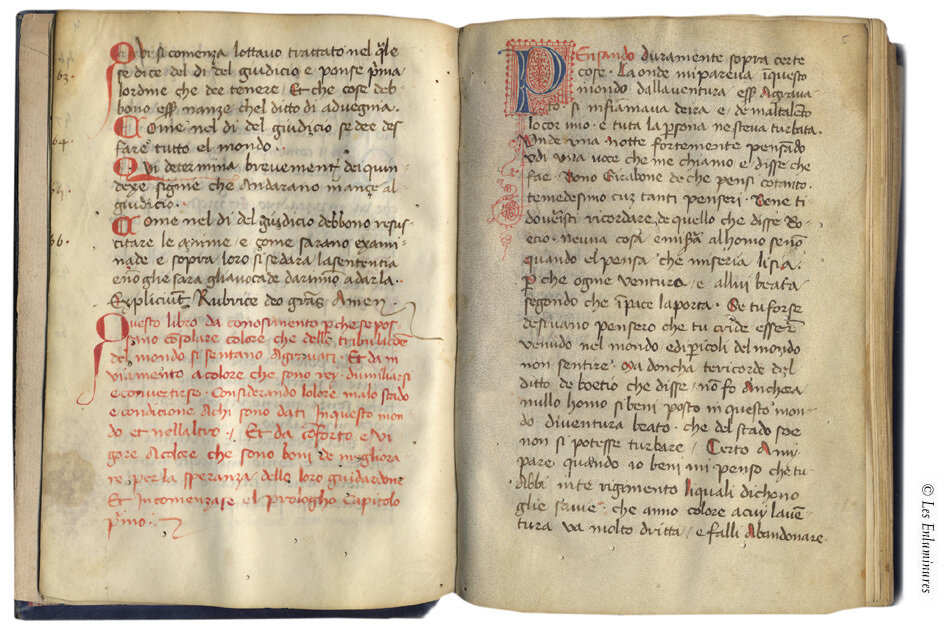 63.
Obi si comenza lottauo trattato nel q̄le
se dice del di del giudicio e ponse p̄ma
lordine che dee tenere / Et che cose deb
bono ess̄ inanze chel ditto di aduegna.
64.
Come nel di del giudicio se dee des
fare tutto el mondo.
Qui determina brevement̄ dei quin
dexe signe che Andarano inançe al
giudicio.
66.
Come nel di del giudicio debbono resus
citare le anime / e come sarano exami
nade e sopra loro si se dara la sententia
Expliciunt Rubrice deo gr̄as Amen.
Questo libro da conoscimento p̄ che se pos
sino cōsolare colore che delle tribulacione
del mondo si sentano Agravati. Et da in
viamento a colore che sono rey dumiliarsi
e convertirse. Considerando lolore malo stado
e condicione Achi sono dati In questo mon
do et nellaltro ./. Et da cōforto e vi
gore A colore che sono boni de migliora
re per la speranza delle loro guidardone
Et Incomenzase el prologho Capitolo
p̄mo.
PEnsando duramente sopra certe
cose. La onde mi pareva ī questo
mondo dalla ventura ess̄ Agrava
to. si infiamava deira e de maltalēto
lo cor mio. e tuta la p̄sona ne steva turbata.
Unde una notte fortemente pensādo
udi una voce che me chiamo e disse che
fae Bono Girabone de che pensi cotanto.
teme desimo cuz tanti penseri. Bene ti
doveristi ricordare de quello che disse Bo
ecio. Neuna cosa e misēa al homo se nō
quando el pensa che miseria li sia.
p̄ che ogne ventura / e allui beata
segondo che ī pace la porta. Se tu forse
desivano pensero che tu cride esser
venudo nel mondo e di p̄icoli del mondo
non sentire. Ma doncha te ricorde del
ditto de boetio che disse / nō fo Anchora
nullo homo si beni posto in questo mon
do di ventura beato. che del stado soe
non si potesse turbare / Certo A mi
pare quando io beni mi penso che tu
Abbi in te rigimento li quali dichono
glie savie. che anno colore a cui la ven
tura va molto dritta / e falli Abandonare
© Les Enluminures